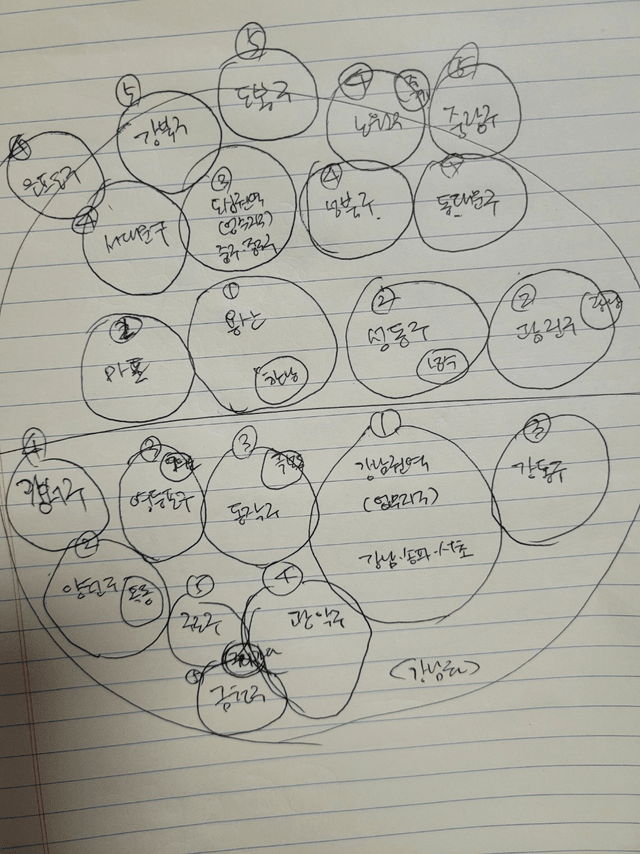 ⑤
도봉구
⑤
강북구
④
노원구
⑤
중랑구
④
은평구
④
서대문구
③
도심권역
(업무지구)
중구·종로구
④
성북구
④
동대문구
①
용산
한남
②
성동구
②
광진구
②
마포
④
강서구
영등포구
③
동작구
①
강남권역
(업무지구)
강남·송파·서초
③
강동구
②
양천구
목동
⑤
구로구
④
관악구
⑤
금천구
(강남권)